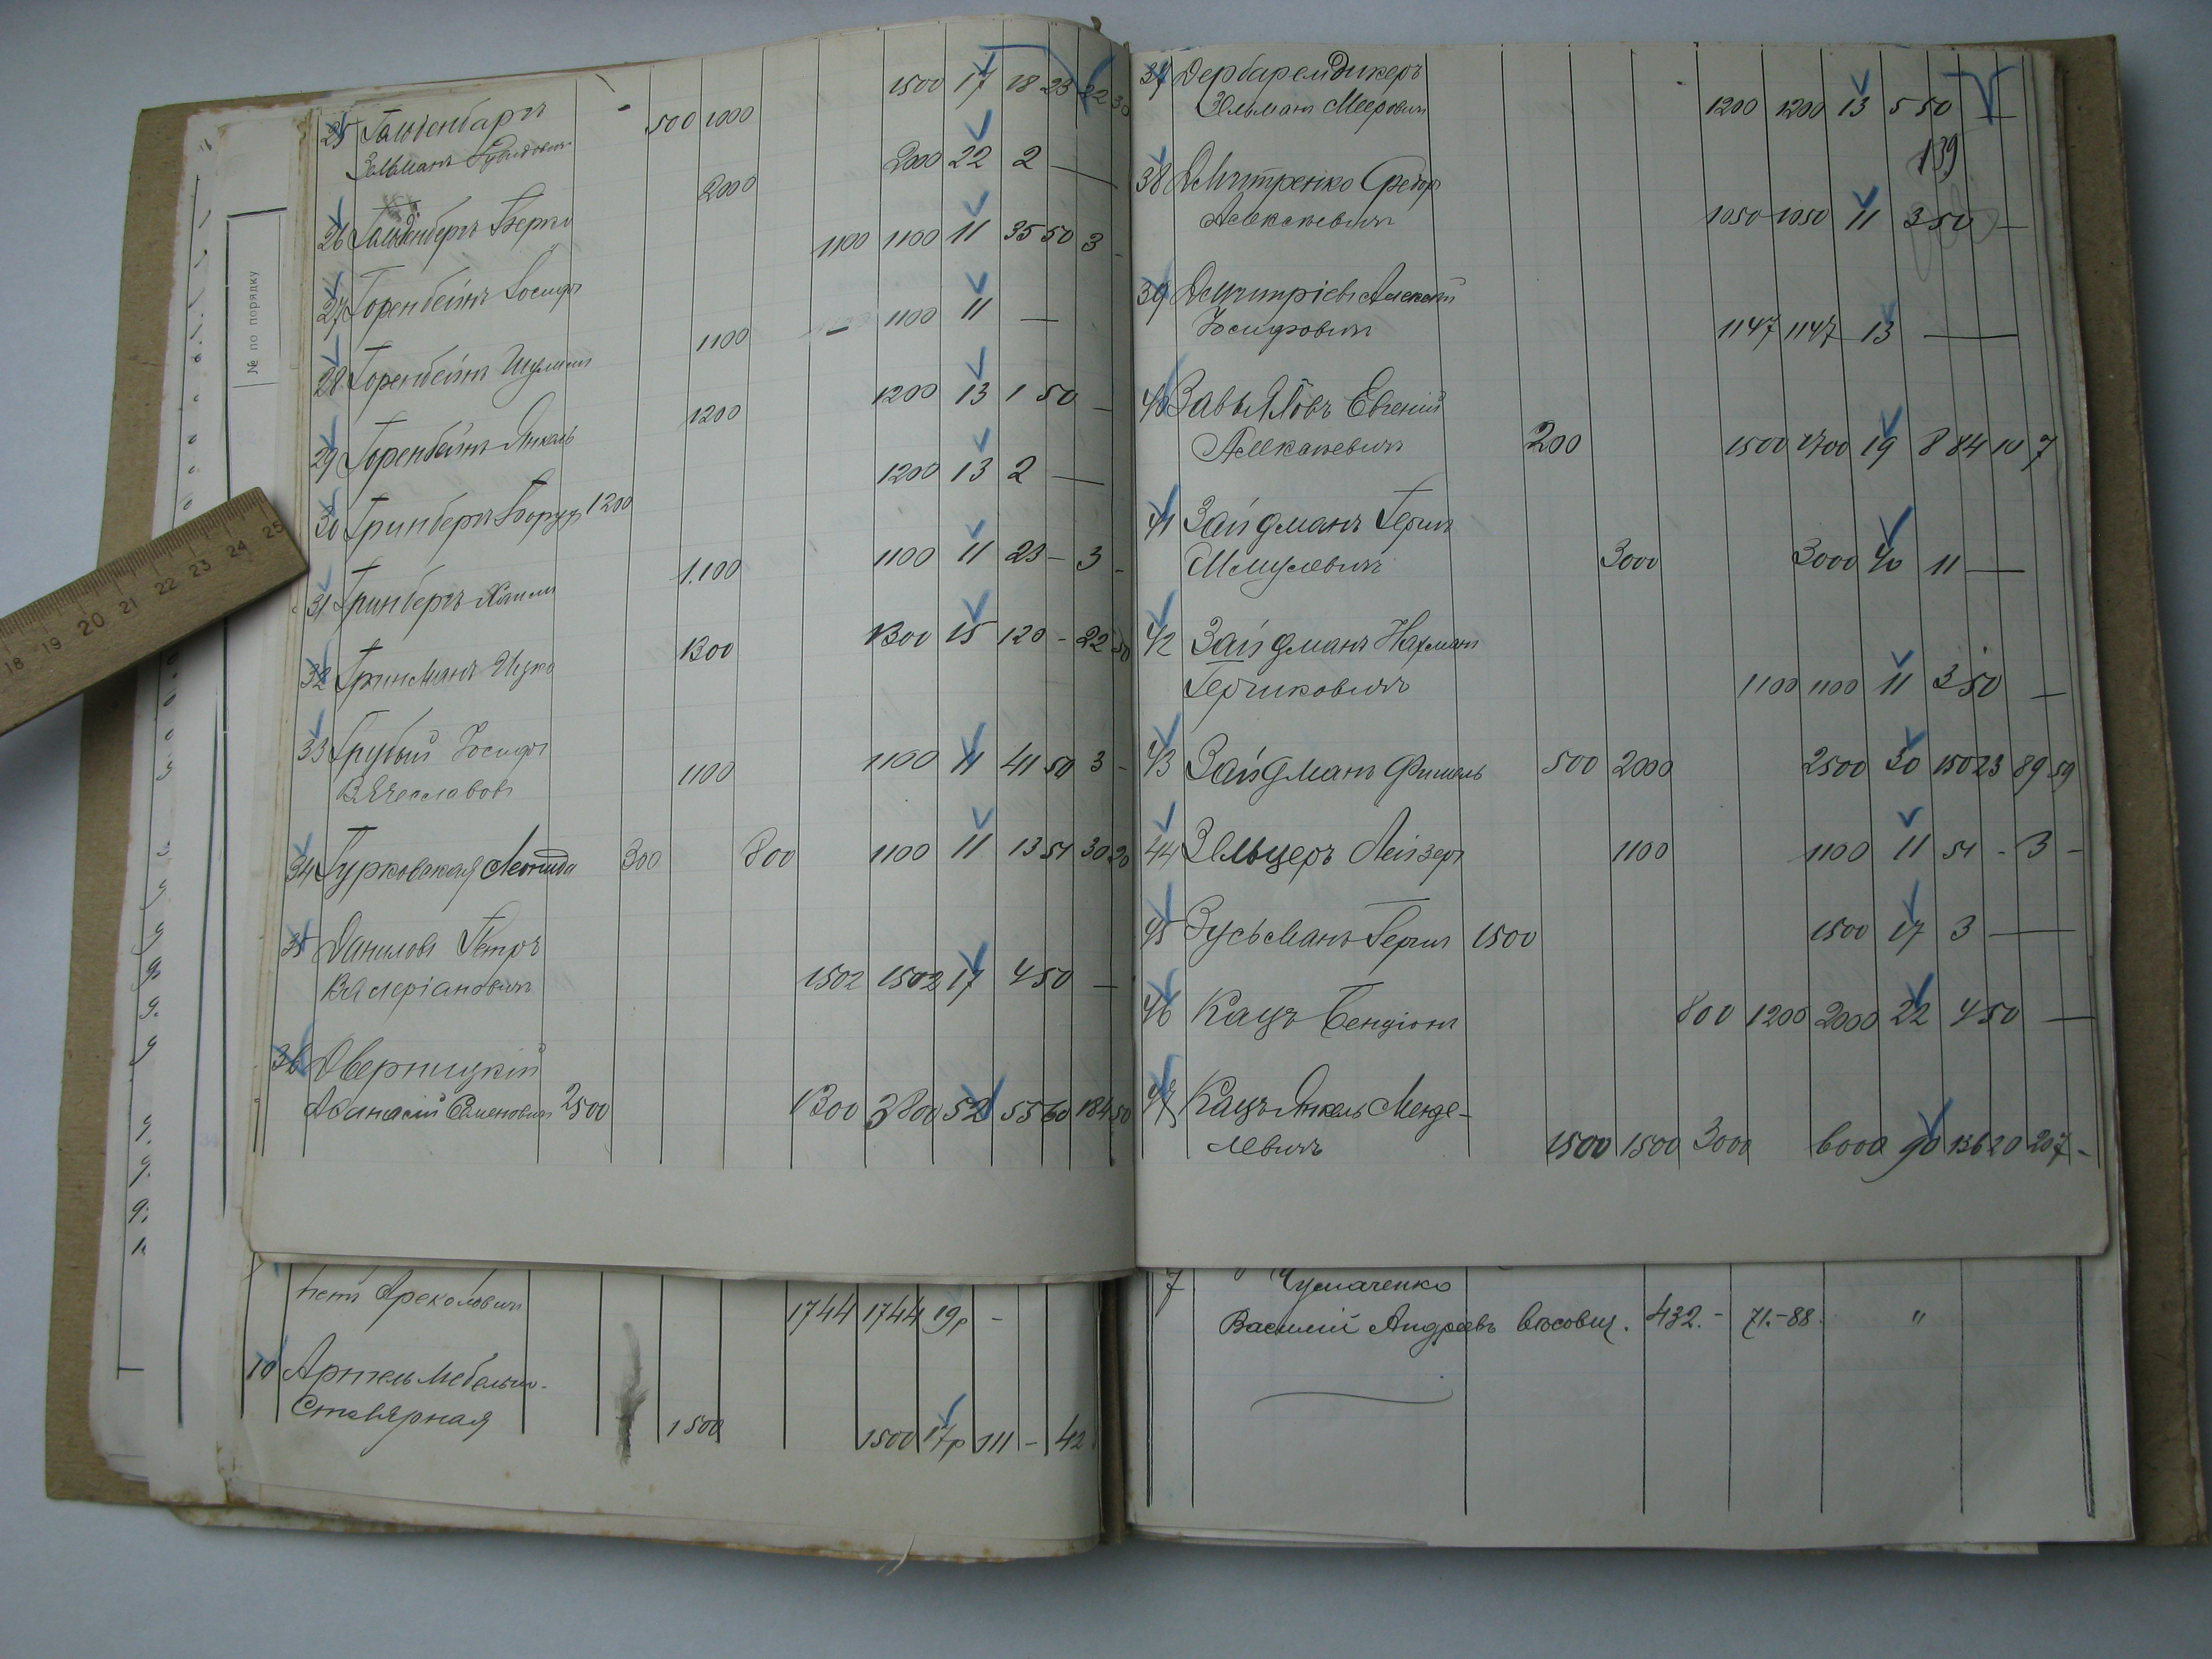 25 Гольденбергъ 500 1000 1500 17 18 23 22 30
Зельманъ
26 Гольденбергъ Берко 2000 2000 22 2 —
27 Горенбейнъ Іосифъ 1100 1100 11 35 50 3 -
28 Горенбейнъ Шулимъ 1100 — 1100 11 —
29 Горенбейнъ Янкель 1200 1200 13 1 50 -
30 Гринбергъ Борухъ 1200 1200 13 2 —
31 Гринбергъ Хаимъ 1.100 1100 11 23 - 3 -
32 Гринманъ Ицко 1300 1300 15 120 - 22 50
33 Грубый Іосифъ
Вячеславов 1100 1100 11 41 50 3 -
34 Гурковская Леонида 300 800 1100 11 13 51 30 20
35 Даниловъ Петръ
Валеріановичъ 1502 1502 17 4 50 —
36 Дверницкій
Афанасій Семеновичъ 2500 1300 3800 52 55 60 184 50
Арекеловичъ 1744 1744 19р -
10 Артель Мебельно-
Столярная 1500 1500 17р 111 - 42
№ по порядку
18 19 20 21 22 23 24 25
37 Дербаремдикеръ
Зельманъ Мееровичъ 1200 1200 13 5 50 —
139
38 Дмитренко Федоръ
Алексѣевичъ 1050 1050 11 3 50 —
39 Дмитріевъ Алексѣй
Іосифовичъ 1147 1147 13 —
40 Завьяловъ Евгеній
Алексѣевичъ 200 1500 1700 19 8 84 10 7
41 Зайдманъ Герш
Шмулевичъ 3000 3000 40 11 —
42 Зайдманъ Нахманъ
Гершковичъ 1100 1100 11 3 50 —
43 Зайдманъ Фишель 500 2000 2500 30 150 23 89 59
44 Зельцеръ Лейзеръ 1100 1100 11 51 - 3 -
45 Зусьманъ Гершъ 1500 1500 17 3 —
46 Кацъ Бенціонъ 800 1200 2000 22 4 50 —
47 Кацъ Янкель Менде-
левичъ 1500 1500 3000 6000 90 136 20 207 -
7 Чумаченко
Василій Андреевъ 432.- 71.-88. "